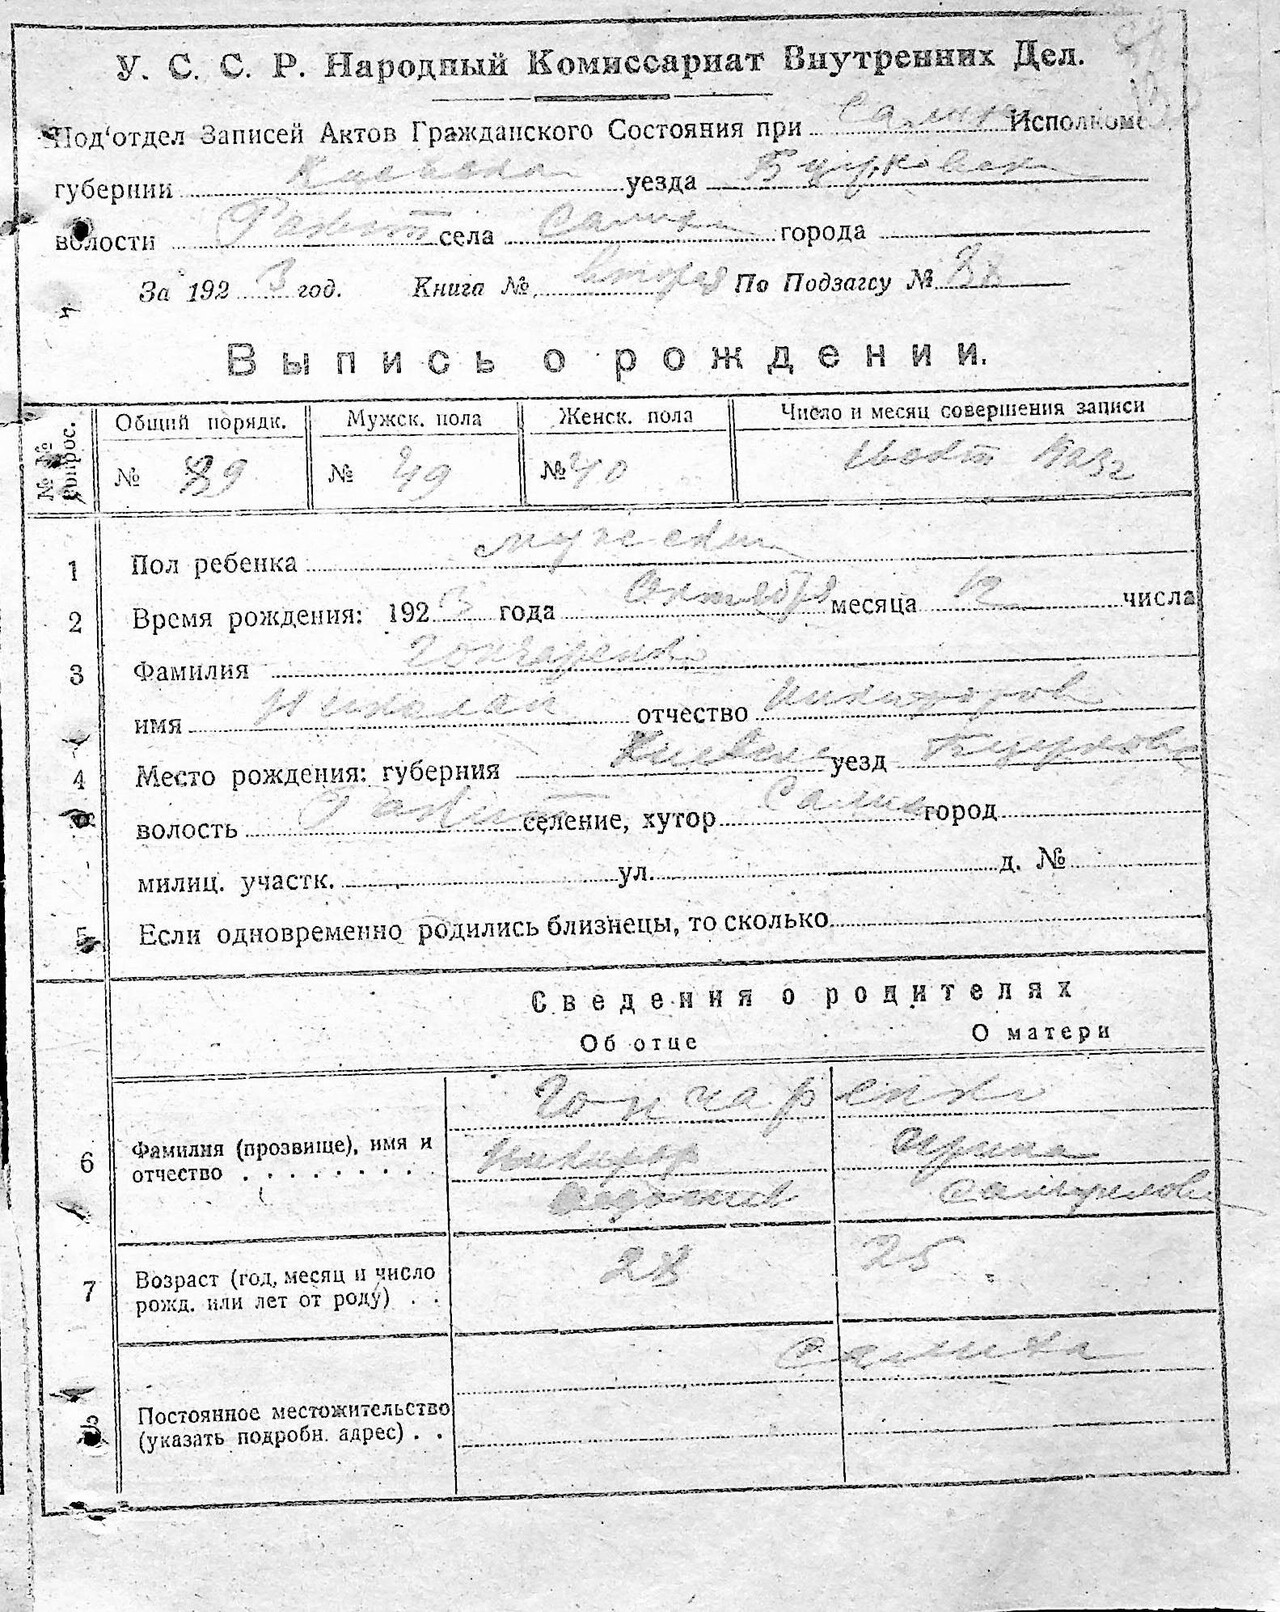 У. С. С. Р. Народный Комиссариат Внутренних Дел.
Под'отдел Записей Актов Гражданского Состояния при Исполкоме
губернии Киевска уезда
волости села города
За 1923 год. Книга № вторая По Подзагсу № 88
Выпись о рождении.
№ № вопрос. Общий порядк. Мужск. пола Женск. пола Число и месяц совершения записи
№ 89 № 49 № 40 1923 г
1 Пол ребенка мужеский
2 Время рождения: 1923 года Октября месяца 12 числа
3 Фамилия Гончаренко
имя Николай отчество Никифоров
4 Место рождения: губерния Киевск уезд
волость селение, хутор город
милиц. участк. ул. д. №
5 Если одновременно родились близнецы, то сколько
Сведения о родителях
Об отце О матери
Гончаренко
6 Фамилия (прозвище), имя и Никифор Ирина
отчество . . . . . . . . Самуилова
7 Возраст (год, месяц и число 28 25
рожд. или лет от роду) . .
8 Постоянное местожительство
(указать подробн. адрес) . .